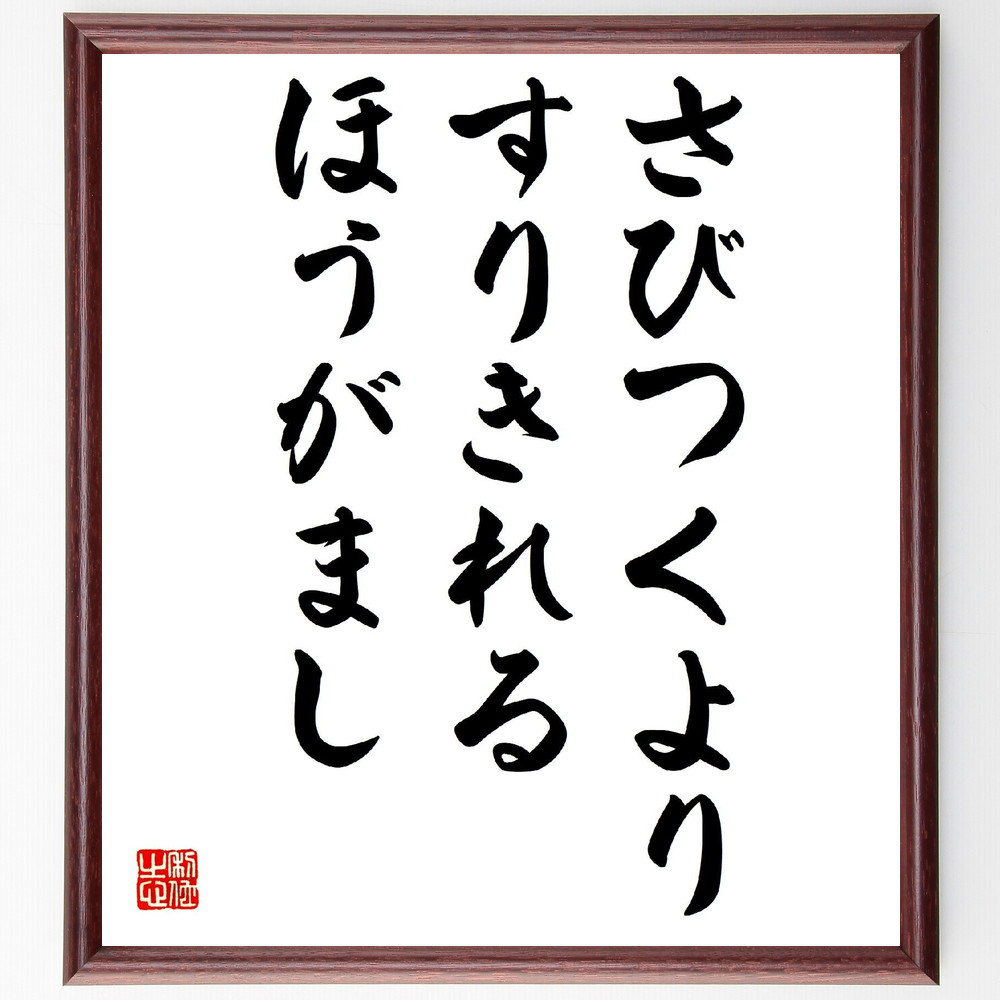 さびつくより
すりきれる
ほうがまし